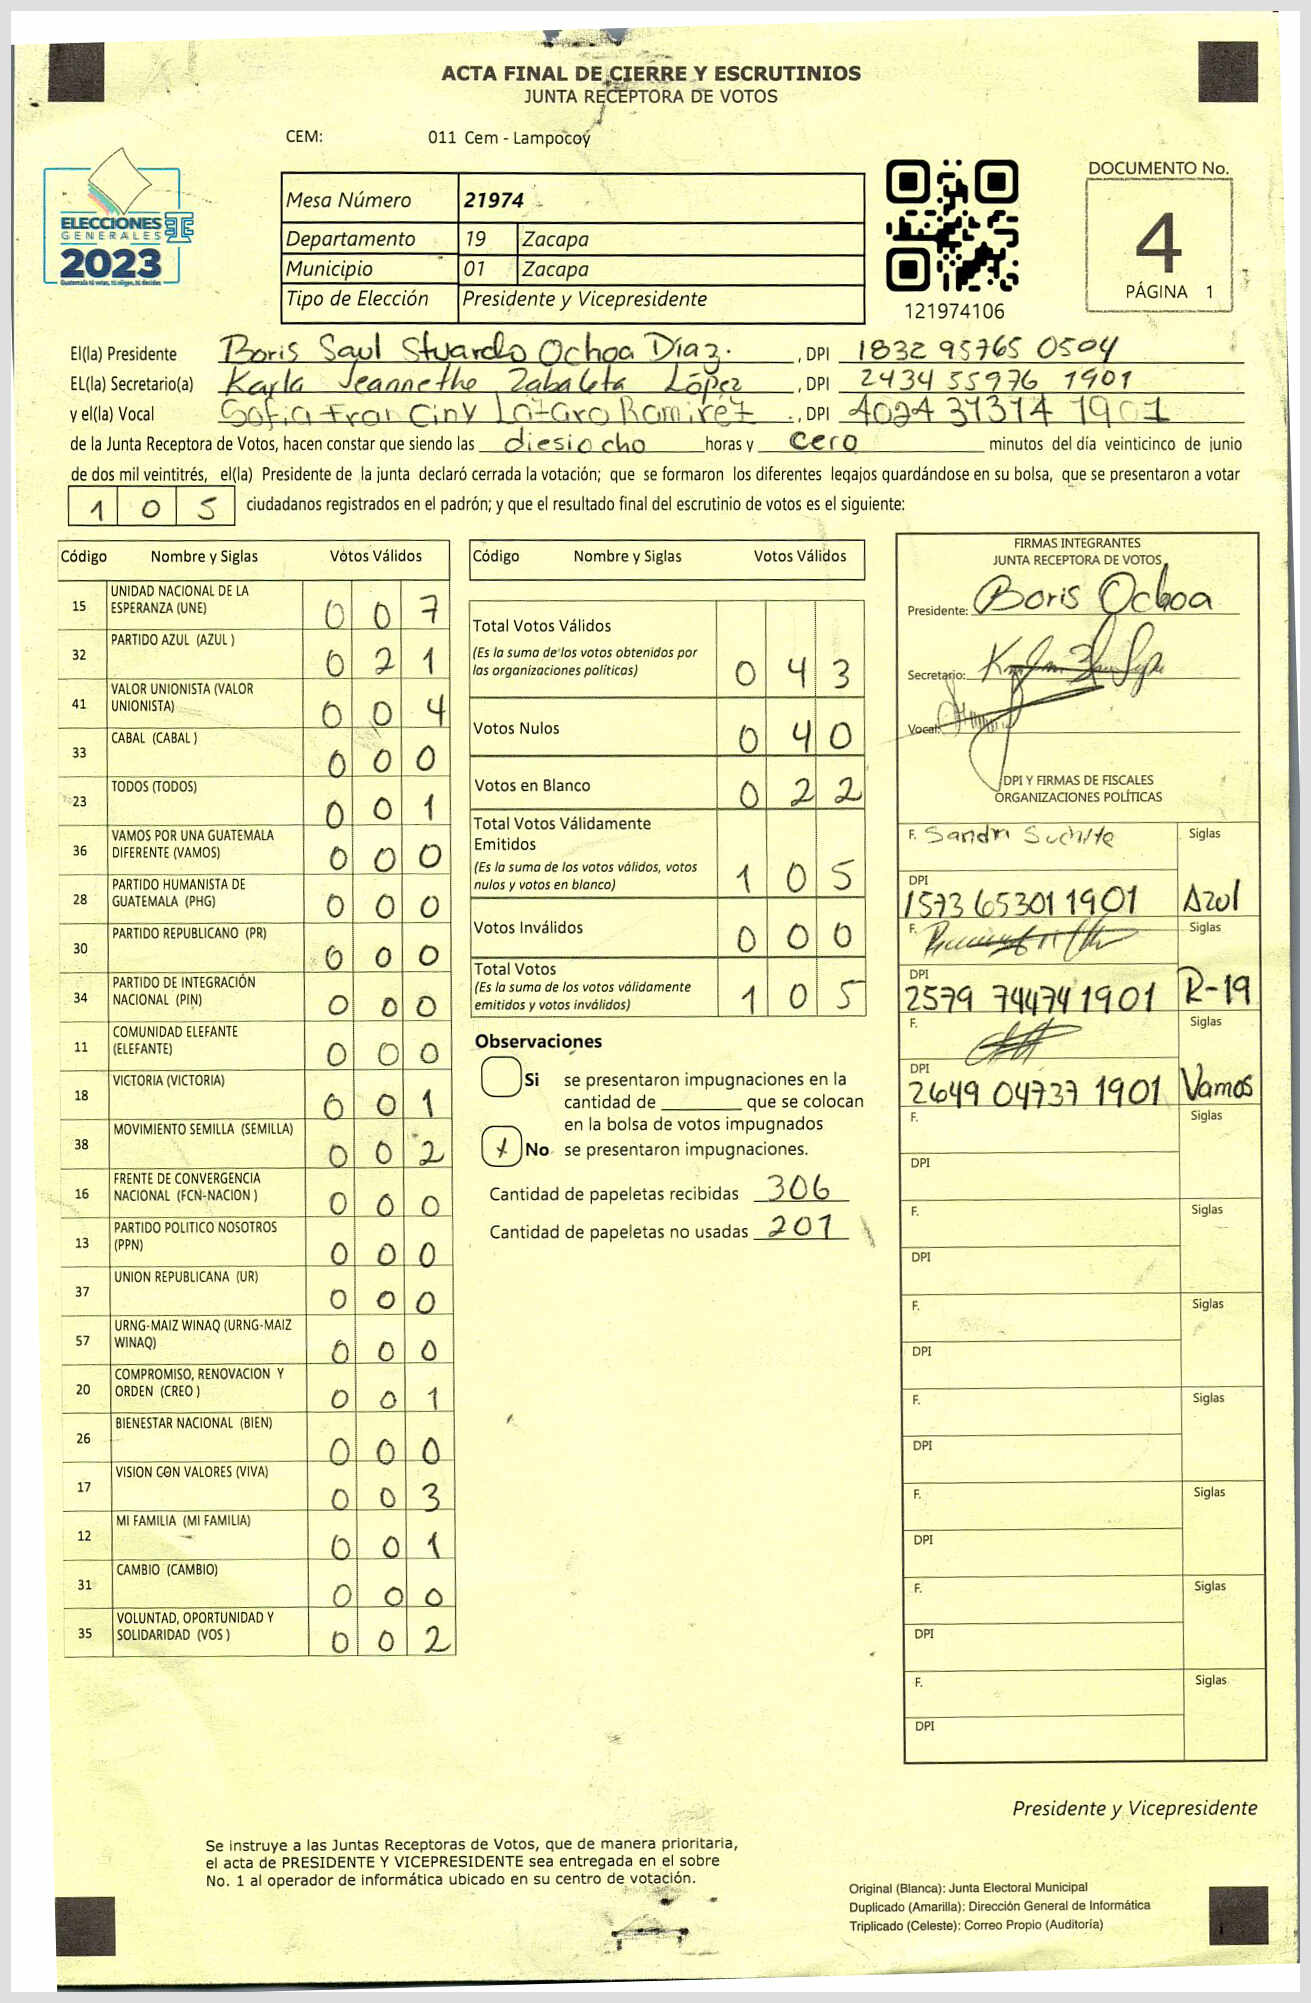 ACTA FINAL DE CIERRE Y ESCRUTINIOS
JUNTA RECEPTORA DE VOTOS
CEM: 011 Cem - Lampocoy
ELECCIONES
GENERALES
2023
Guatemala tú votas, tú eliges, tú decides
Mesa Número 21974
Departamento 19 Zacapa
Municipio 01 Zacapa
Tipo de Elección Presidente y Vicepresidente
121974106
DOCUMENTO No.
4
PÁGINA 1
El(la) Presidente Boris Saul Stuardo Ochoa Díaz. , DPI 1832 95765 0504
EL(la) Secretario(a) Karla Jeannethe Zabaleta López , DPI 2434 55976 1901
y el(la) Vocal Sofia Fran Ciny Lázaro Ramírez , DPI 4024 31314 1901
de la Junta Receptora de Votos, hacen constar que siendo las diesiocho horas y cero minutos del día veinticinco de junio
de dos mil veintitrés, el(la) Presidente de la junta declaró cerrada la votación; que se formaron los diferentes legajos guardándose en su bolsa, que se presentaron a votar
105 ciudadanos registrados en el padrón; y que el resultado final del escrutinio de votos es el siguiente:
Código Nombre y Siglas Votos Válidos
15 UNIDAD NACIONAL DE LA ESPERANZA (UNE) 007
32 PARTIDO AZUL (AZUL ) 021
41 VALOR UNIONISTA (VALOR UNIONISTA) 004
33 CABAL (CABAL ) 000
23 TODOS (TODOS) 001
36 VAMOS POR UNA GUATEMALA DIFERENTE (VAMOS) 000
28 PARTIDO HUMANISTA DE GUATEMALA (PHG) 000
30 PARTIDO REPUBLICANO (PR) 000
34 PARTIDO DE INTEGRACIÓN NACIONAL (PIN) 000
11 COMUNIDAD ELEFANTE (ELEFANTE) 000
18 VICTORIA (VICTORIA) 001
38 MOVIMIENTO SEMILLA (SEMILLA) 002
16 FRENTE DE CONVERGENCIA NACIONAL (FCN-NACION ) 000
13 PARTIDO POLITICO NOSOTROS (PPN) 000
37 UNION REPUBLICANA (UR) 000
57 URNG-MAIZ WINAQ (URNG-MAIZ WINAQ) 000
20 COMPROMISO, RENOVACION Y ORDEN (CREO ) 001
26 BIENESTAR NACIONAL (BIEN) 000
17 VISION CON VALORES (VIVA) 003
12 MI FAMILIA (MI FAMILIA) 001
31 CAMBIO (CAMBIO) 000
35 VOLUNTAD, OPORTUNIDAD Y SOLIDARIDAD (VOS ) 002
Código Nombre y Siglas Votos Válidos
Total Votos Válidos
(Es la suma de los votos obtenidos por
las organizaciones políticas) 043
Votos Nulos 040
Votos en Blanco 022
Total Votos Válidamente
Emitidos
(Es la suma de los votos válidos, votos
nulos y votos en blanco) 105
Votos Inválidos 000
Total Votos
(Es la suma de los votos válidamente
emitidos y votos inválidos) 105
Observaciones
Si se presentaron impugnaciones en la
cantidad de ________ que se colocan
en la bolsa de votos impugnados
x No se presentaron impugnaciones.
Cantidad de papeletas recibidas 306
Cantidad de papeletas no usadas 201
FIRMAS INTEGRANTES
JUNTA RECEPTORA DE VOTOS
Presidente: Boris Ochoa
Secretario:
Vocal:
DPI Y FIRMAS DE FISCALES
ORGANIZACIONES POLÍTICAS
F. Sandra Suchite Siglas
DPI
1573 65301 1901 Azul
F. Siglas
DPI
2579 74474 1901 R-19
F. Siglas
DPI
2649 04737 1901 Vamos
F. Siglas
DPI
F. Siglas
DPI
F. Siglas
DPI
F. Siglas
DPI
F. Siglas
DPI
F. Siglas
DPI
F. Siglas
DPI
Presidente y Vicepresidente
Se instruye a las Juntas Receptoras de Votos, que de manera prioritaria,
el acta de PRESIDENTE Y VICEPRESIDENTE sea entregada en el sobre
No. 1 al operador de informática ubicado en su centro de votación.
Original (Blanca): Junta Electoral Municipal
Duplicado (Amarilla): Dirección General de Informática
Triplicado (Celeste): Correo Propio (Auditoría)